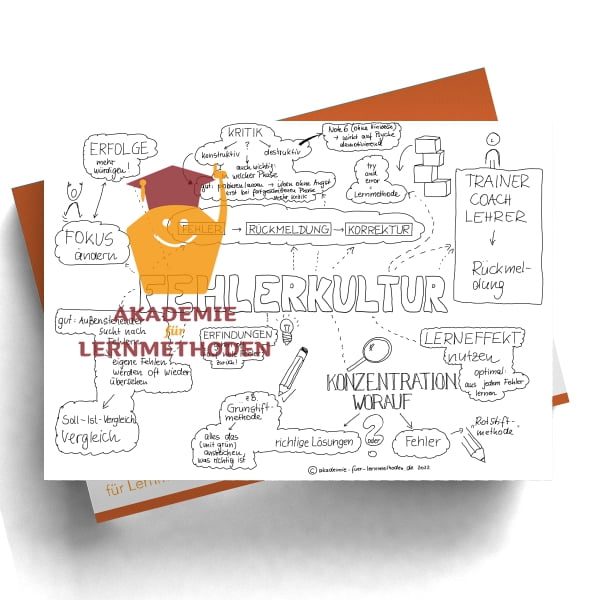 KRITIK
?
konstruktiv
destruktiv
auch wichtig:
in welcher Phase
gut: probieren lassen → üben ohne Angst
erst bei fortgeschrittenen Phase
mehr Kritik
Note 6 (ohne Hinweise)
→ wirkt auf Psyche
demotivierend
try
and
error
↓
Lernmethode
ERFOLGE
mehr
würdigen!
FOKUS
ändern
TRAINER
COACH
LEHRER
↓
Rückmel-
dung
FEHLER → RÜCKMELDUNG → KORREKTUR
FEHLERKULTUR
AKADEMIE
für
LERNMETHODEN
gut: Außenstehender
sucht nach
Fehlern
eigene Fehler
werden oft wieder
übersehen
Soll-Ist-Vergleich
Vergleich
ERFINDUNGEN
zurück!
LERNEFFEKT
nutzen
optimal
aus jedem Fehler
lernen
KONZENTRATION
WORAUF
?
oder
z.B.
Grünstift-
methode
alles das
(mit grün)
anstreichen,
was richtig ist
richtige Lösungen
Fehler
"Rotstift-
methode"
© akademie-fuer-lernmethoden.de 2022
für Lernm